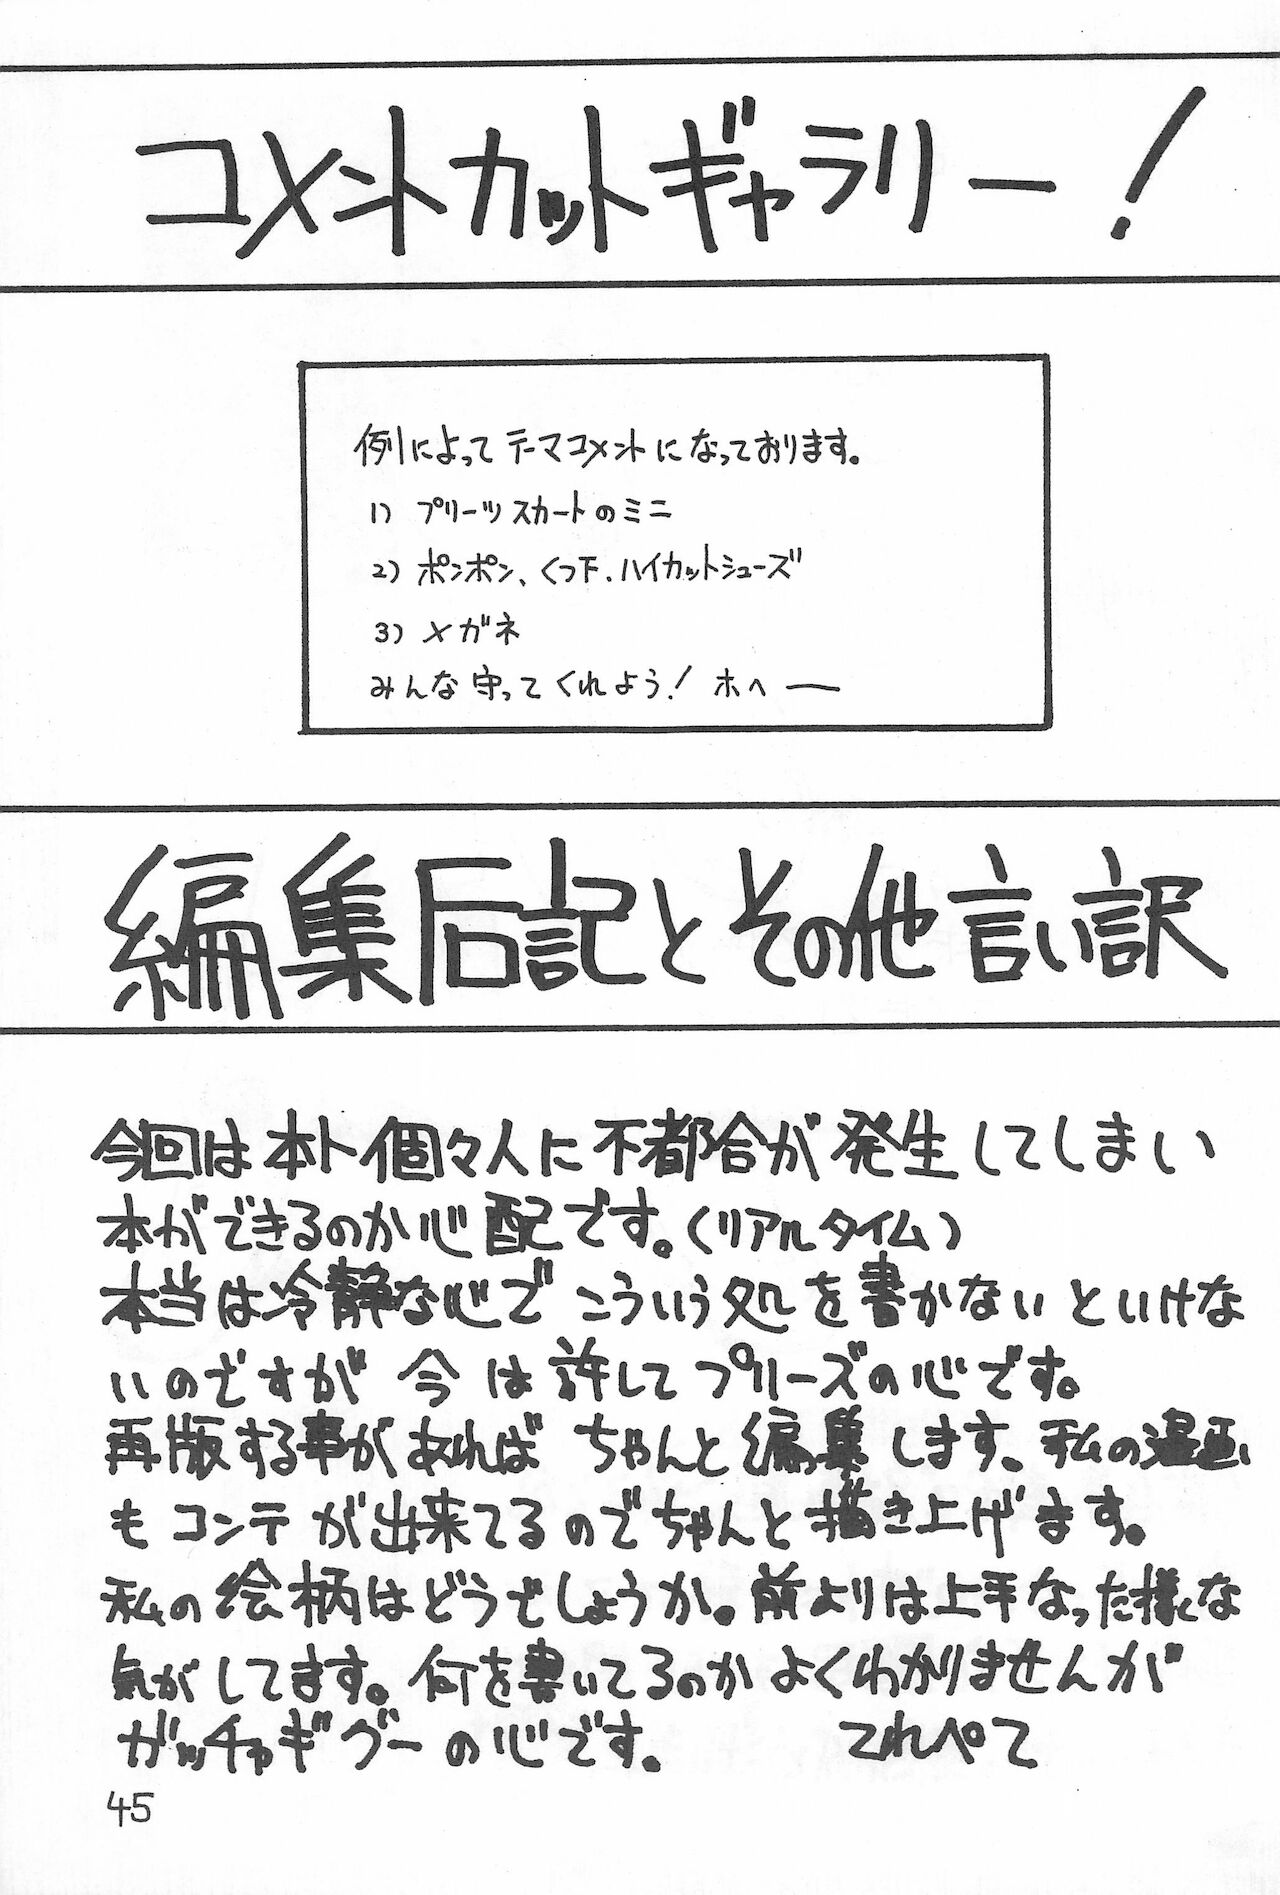 コメントカットギャラリー！
例によってテーマコメントになっております。
1) プリーツスカートのミニ
2) ポンポン、くつ下、ハイカットシューズ
3) メガネ
みんな守ってくれよう！ホヘー
編集后記とその他言い訳
今回は本ト個々人に不都合が発生してしまい
本ができるのか心配です。(リアルタイム)
本当は冷静な心でこういう処を書かないといけな
いのですが今は許してプリーズの心です。
再版する事があればちゃんと編集します、私の漫画
もコンテが出来てるのでちゃんと描き上げます。
私の絵柄はどうでしょうか。前よりは上手なった様な
気がしてます。何を書いてるのかよくわかりませんが
ガッチャギグーの心です。 てれぺて
45